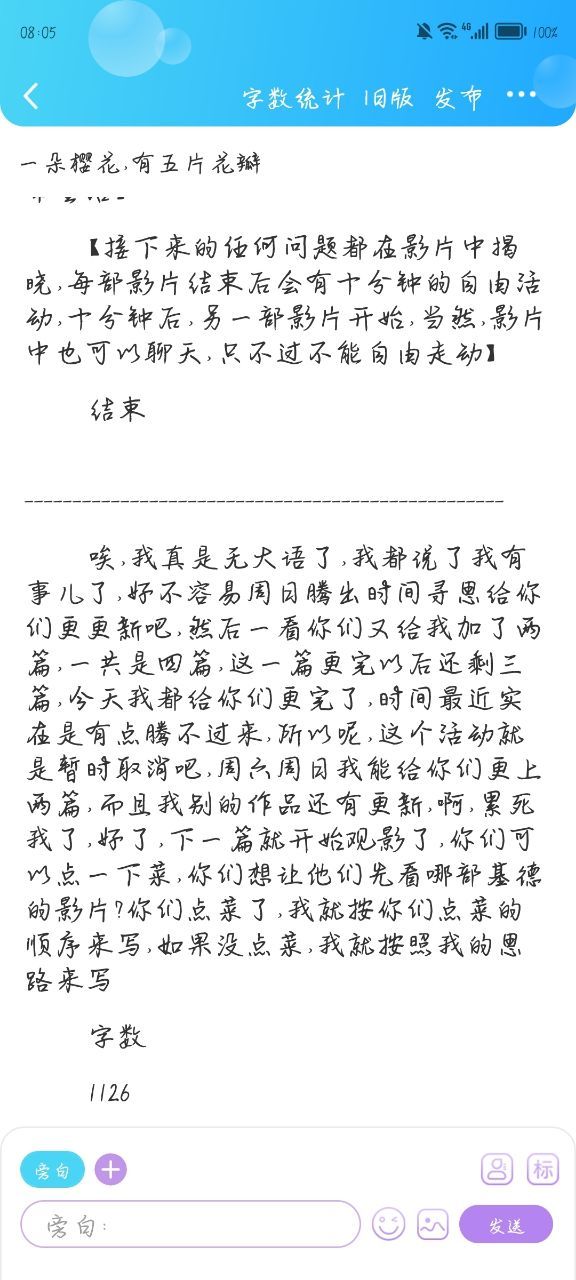 08:05
4G
100%
字数统计 旧版 发布 •••
一朵樱花,有五片花瓣
【接下来的任何问题都在影片中揭
晓,每部影片结束后会有十分钟的自由活
动,十分钟后,另一部影片开始,当然,影片
中也可以聊天,只不过不能自由走动】
结束
------------------------------------------------
唉,我真是无犬语了,我都说了我有
事儿了,好不容易周日腾出时间寻思给你
们更更新吧,然后一看你们又给我加了两
篇,一共是四篇,这一篇更完以后还剩三
篇,今天我都给你们更完了,时间最近实
在是有点腾不过来,所以呢,这个活动就
是暂时取消吧,周六周日我能给你们更上
两篇,而且我别的作品还有更新,啊,累死
我了,好了,下一篇就开始观影了,你们可
以点一下菜,你们想让他们先看哪部基德
的影片?你们点菜了,我就按你们点菜的
顺序来写,如果没点菜,我就按照我的思
路来写
字数
1126
旁白
标
旁白:
发送